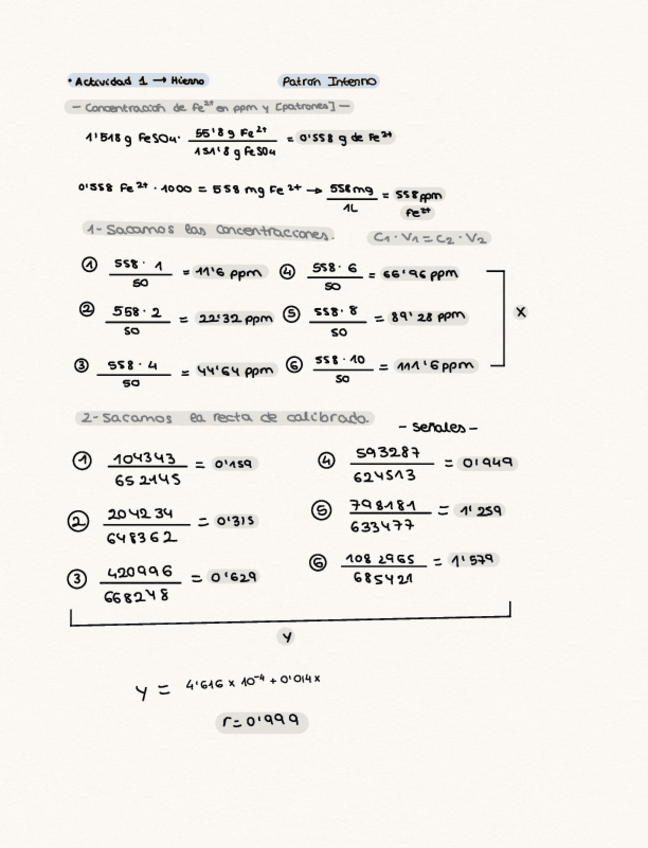 · Actividad 1 → Hierro Patrón Interno
- Concentración de Fe²⁺ en ppm y [patrones] -
1'518 g FeSO₄ · 55'8 g Fe²⁺ / 151'8 g FeSO₄ = 0'558 g de Fe²⁺
0'558 Fe²⁺ · 1000 = 558 mg Fe²⁺ → 558mg / 1L = 558ppm Fe²⁺
1- Sacamos las concentraciones. C₁ · V₁ = C₂ · V₂
① 558 · 1 / 50 = 11'6 ppm ④ 558 · 6 / 50 = 66'96 ppm
② 558 · 2 / 50 = 22'32 ppm ⑤ 558 · 8 / 50 = 89'28 ppm x
③ 558 · 4 / 50 = 44'64 ppm ⑥ 558 · 10 / 50 = 111'6 ppm
2- Sacamos la recta de calibrado.
- Señales -
① 104343 / 652145 = 0'159 ④ 593287 / 624513 = 0'949
② 204234 / 648362 = 0'315 ⑤ 798181 / 633477 = 1'259
③ 420996 / 668248 = 0'629 ⑥ 1082965 / 685421 = 1'579
y
y = 4'616 x 10⁻⁴ + 0'014x
r = 0'999